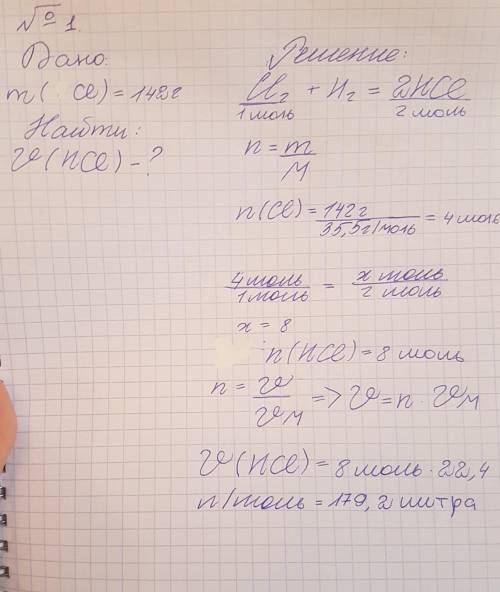 № 1.
Дано:
m(Cl) = 142г
Найти:
V(HCl) - ?
Решение:
Cl₂ + H₂ = 2HCl
1 моль 2 моль
n = m/M
n(Cl) = 142г / 35,5г/моль = 4 моль
4 моль / 1 моль = x моль / 2 моль
x = 8
n(HCl) = 8 моль
n = V/Vм => V = n · Vм
V(HCl) = 8 моль · 22,4
л/моль = 179,2 литра